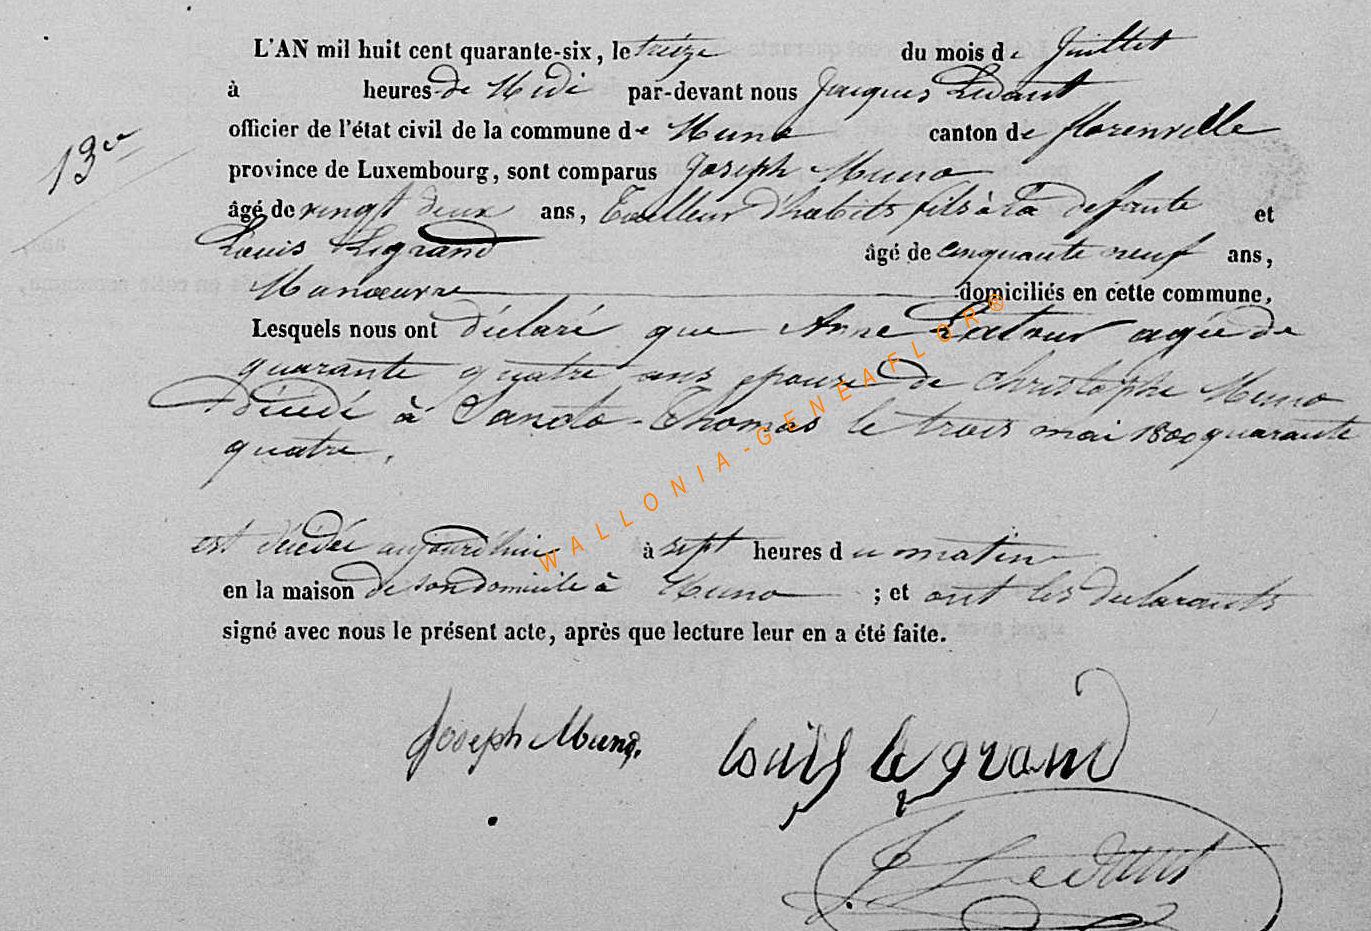 L'AN mil huit cent quarante-six, le treize du mois de Juillet
à heures de Midi par-devant nous Jacques Ledant
officier de l'état civil de la commune de Muno canton de florenville
13e
province de Luxembourg, sont comparus Joseph Muno
âgé de vingt deux ans, Tailleur d'habits fils à la defunte et
Louis Legrand âgé de cinquante neuf ans,
Manoeuvre domiciliés en cette commune,
Lesquels nous ont déclaré que Anne agée de
quarante quatre ans epouse de Christophe Muno
décédé à Sancto-Thomas le trois mai 1800 quarante
quatre,
est décédée aujourd'hui à sept heures du matin
en la maison de son domicile à Muno ; et ont les declarants
signé avec nous le présent acte, après que lecture leur en a été faite.
WALLONIA-GENEAFLOR®
Joseph Muno. louis legrand
J. Ledant